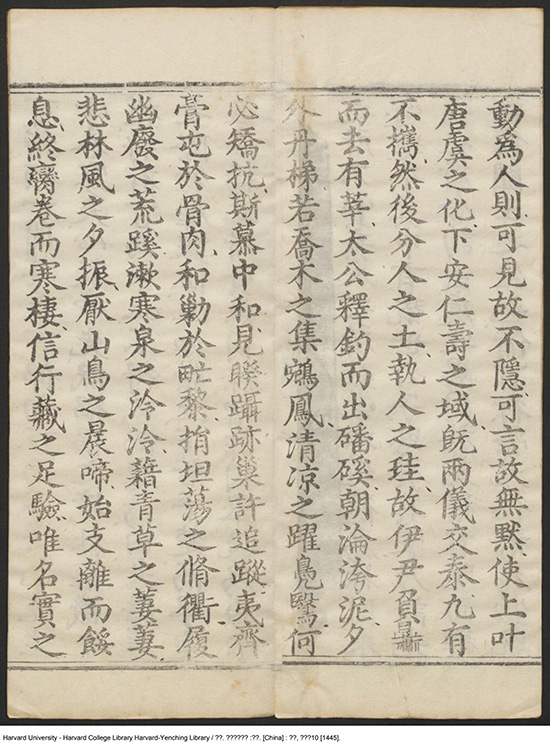 動為人則可見故不隱可言故無黙使上叶
唐虞之化下安仁壽之域旣兩儀交泰九有
不擕然後分人之土執人之珪故伊尹負鼎
而去有莘太公釋釣而出磻磎朝淪洿泥夕
外丹梯若喬木之集鵷鳳清凉之躍鳧鷖何
必矯抗斯慕中和見睽躡跡巢許追蹤夷齊
膏屯於骨肉和勦於甿黎捐坦蕩之脩衢履
幽廢之荒蹊漱寒泉之泠泠藉青草之萋萋
悲林風之夕振厭山鳥之晨啼始支離而餒
息終臠卷而寒棲信行藏之足驗唯名實之
Harvard University - Harvard College Library Harvard-Yenching Library / ??. ?????? :??. [China] : ??, ???10 [1445].